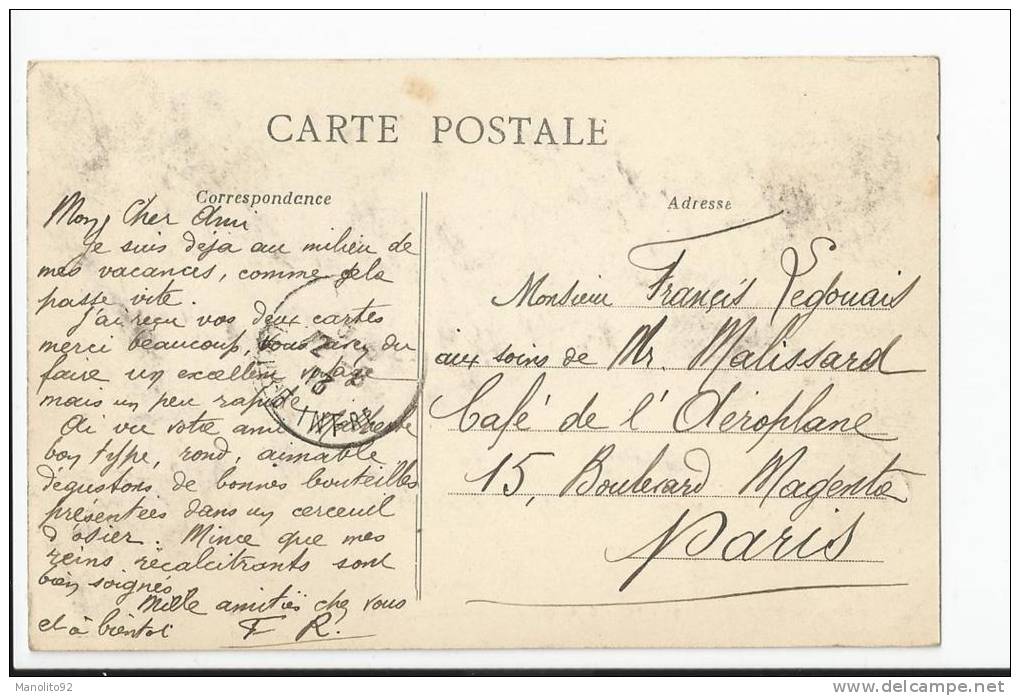 CARTE POSTALE
Correspondance
Mon Cher Ami
Je suis déja au milieu de
mes vacances, comme cela
passe vite.
J'ai reçu vos deux cartes
merci beaucoup, vous avez du
faire un excellent voyage
mais un peu rapide
Ai vu votre ami
bon type, rond, aimable
dégustons de bonnes bouteilles
présentées dans un cerceuil
d'osier. Mince que mes
reins récalcitrants sont
bien soignés
Mille amitiés chez vous
et à bientot F R.
Adresse
Monsieur Françis Legouais
aux soins de Mr. Malissard
Café de l'Aéroplane
15, Boulevard Magenta
Paris
Manolito92
delcampe.net